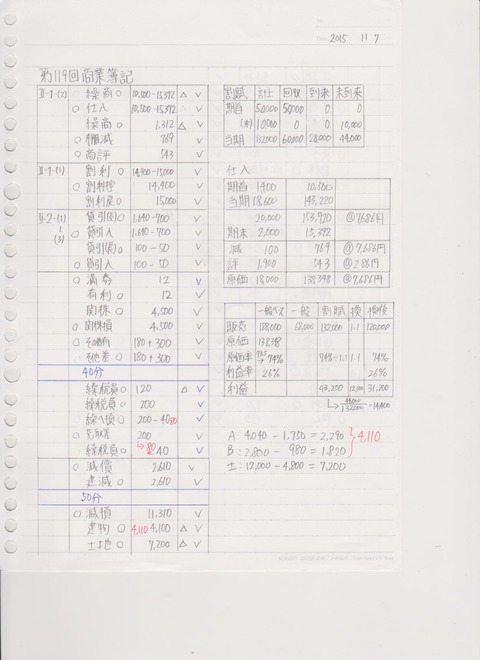 2015 11 7
第119回商業簿記
II-1-(2) 繰商○ 10,500-15,372 △ ✓
○仕入 10,500-15,372 ✓
繰商○ 1,312 △ ✓
○棚減 769 ✓
○商評 543 ✓
II-1-(1) 割利○ 14,400-15,000 ✓
○割利控 14,400 ✓
割利戻○ 15,000 ✓
II-2-(1) 貸引(売)○ 1,640-700 ✓
(3) ○貸引入 1,640-700 ✓
100-50 ✓
○貸引入 100-50 ✓
○満券 12 ✓
有利○ 12 ✓
関株○ 4,500 ✓
○関株損 4,500 ✓
180+300 ✓
180+300 ✓
40分
繰税資○ 120 △ ✓
繰税負○ 200 ✓
200-40 80 ✓
200
繰税資○ 80 40 ✓
○減債 2,610 ✓
建減○ 2,610 ✓
50分
○減損 11,310 ✓
建物○ 4,110 4,100 △ ✓
土地○ 7,200 △ ✓
割賦 計上 回収 到来 未到来
期首 50,000 50,000 0 0
(未) 10,000 0 0 10,000
当期 132,000 60,000 28,000 44,000
仕入
期首 1,400 10,500
当期 18,600 143,220
20,000 153,720 @7.686円
期末 2,000 15,372
減 100 769 @7.686円
評 1,900 543 @286円
原価 18,000 138,348 @7.686円
一般ベース 一般 割賦 換 換後
販売 188,000 68,000 132,000 1.1 120,000
原価 138,348
原価率 74% 74%÷1.1 1.1 74%
利益率 26% 26%
利益 43,200 12,000 31,200
44,000/132,000 = 14,400
A: 4,040 - 1,750 = 2,290
4,110
B: 2,800 - 980 = 1,820
土: 12,000 - 4,800 = 7,200